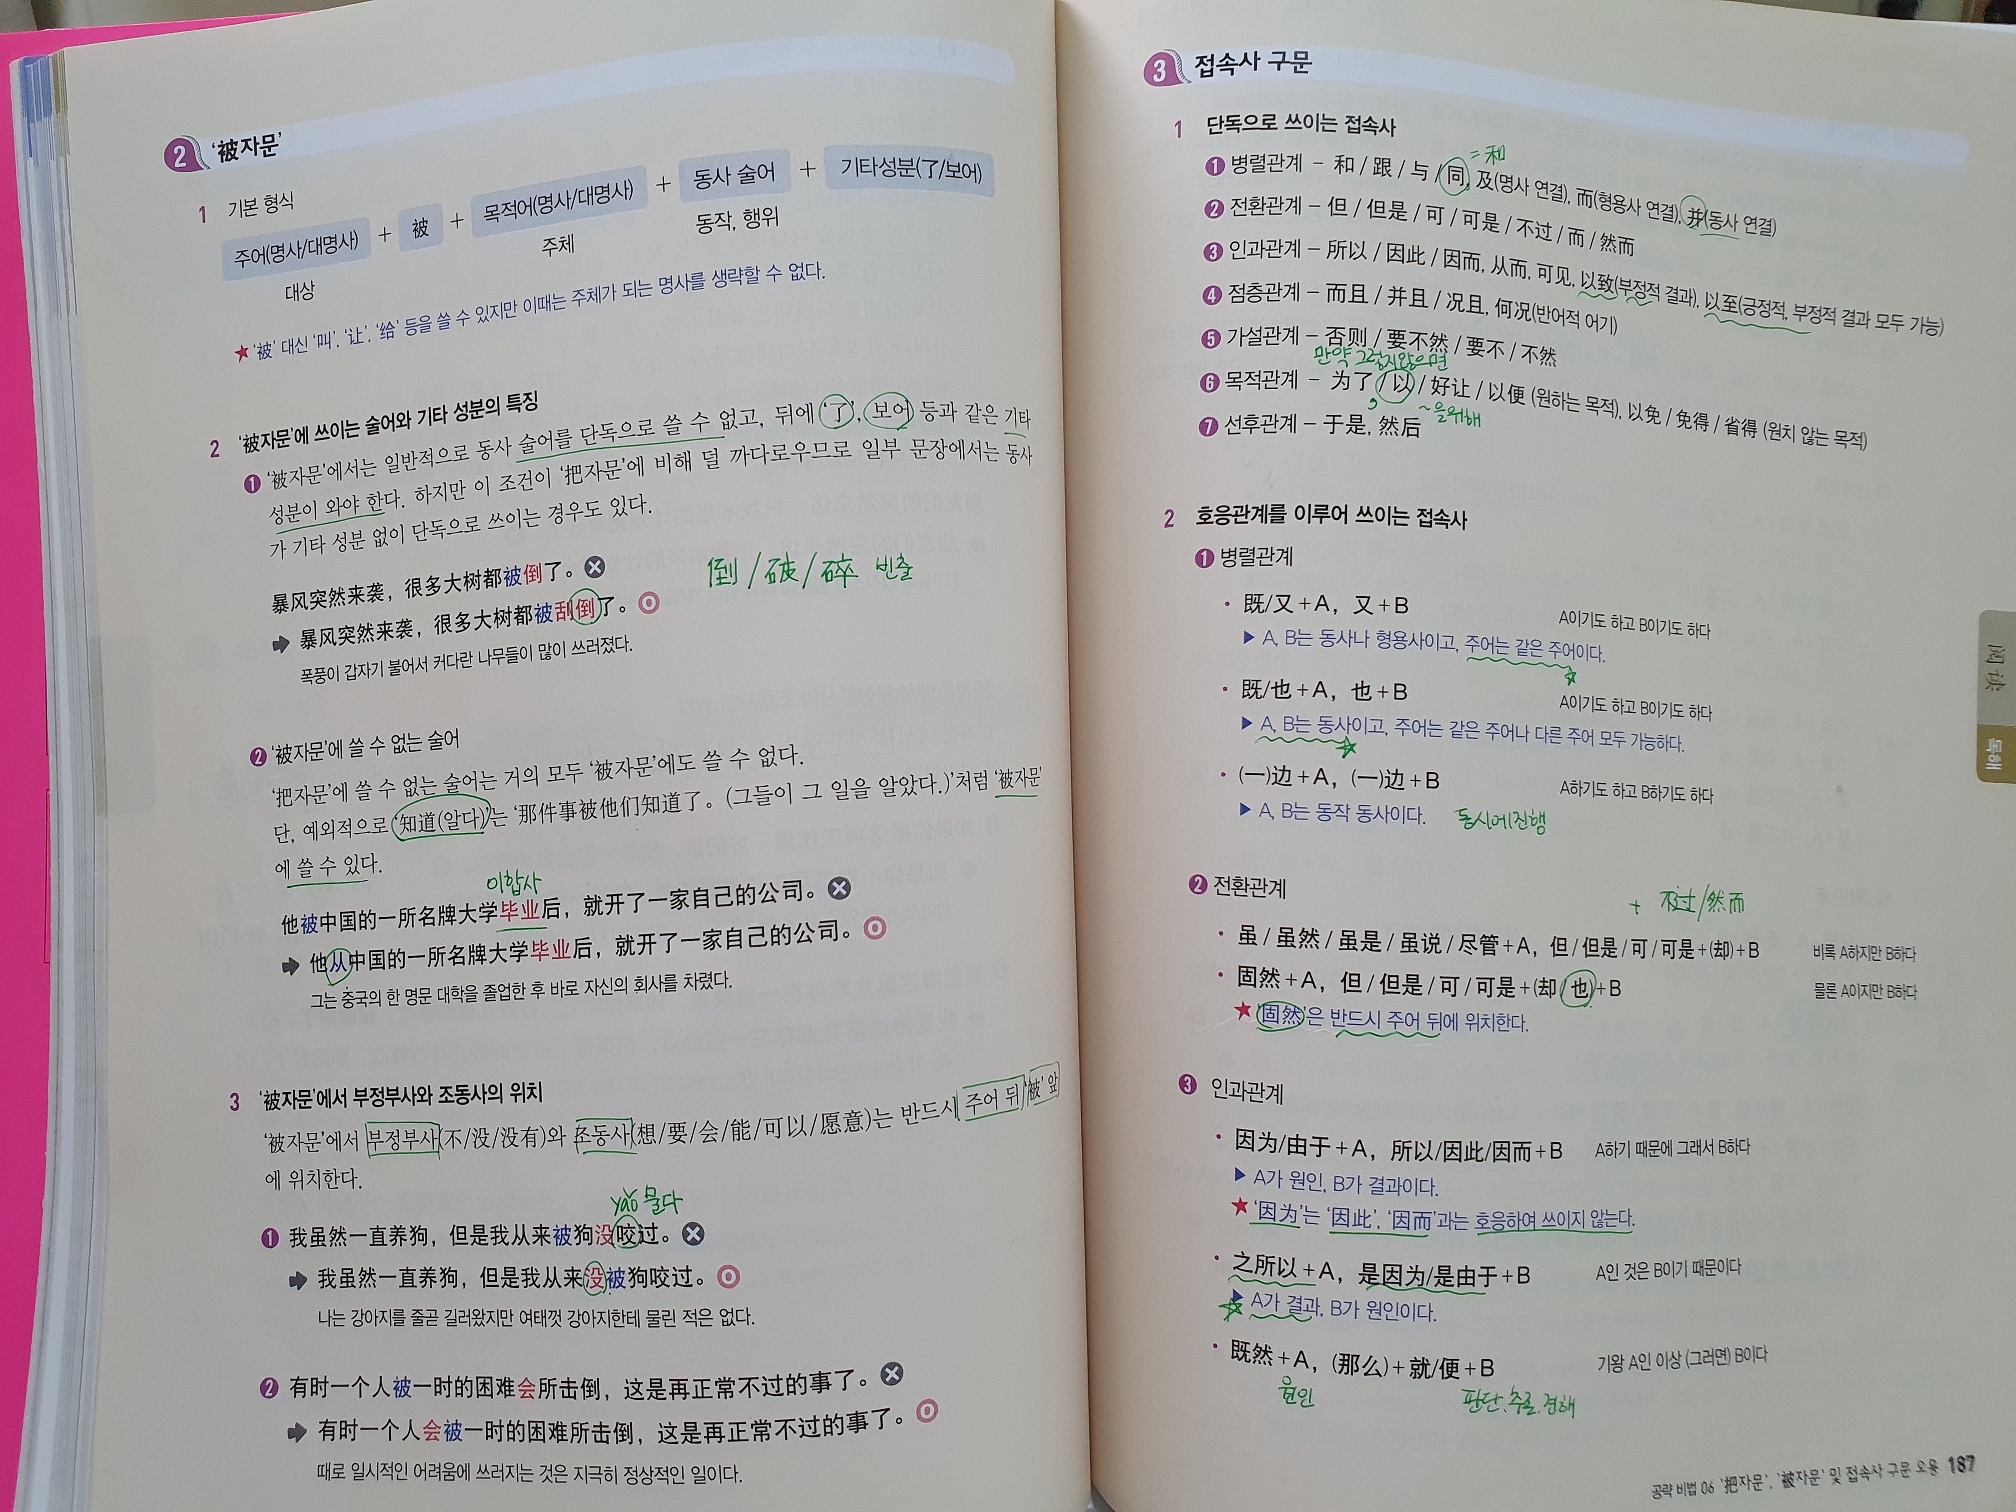 2 '被자문'
1 기본 형식
주어(명사/대명사) + 被 + 목적어(명사/대명사) + 동사 술어 + 기타성분(了/보어)
대상 주체 동작, 행위
★ '被' 대신 '叫', '让', '给' 등을 쓸 수 있지만 이때는 주체가 되는 명사를 생략할 수 없다.
2 '被자문'에 쓰이는 술어와 기타 성분의 특징
❶ '被자문'에서는 일반적으로 동사 술어를 단독으로 쓸 수 없고, 뒤에 '了', 보어 등과 같은 기타
성분이 와야 한다. 하지만 이 조건이 '把자문'에 비해 덜 까다로우므로 일부 문장에서는 동사
가 기타 성분 없이 단독으로 쓰이는 경우도 있다.
暴风突然来袭，很多大树都被倒了。 ✕
倒/破/碎 빈출
➡ 暴风突然来袭，很多大树都被刮倒了。 O
폭풍이 갑자기 불어서 커다란 나무들이 많이 쓰러졌다.
❷ '被자문'에 쓸 수 없는 술어
'把자문'에 쓸 수 없는 술어는 거의 모두 '被자문'에도 쓸 수 없다.
단, 예외적으로 '知道(알다)'는 '那件事被他们知道了。(그들이 그 일을 알았다.)'처럼 '被자문'
에 쓸 수 있다.
이합사
他被中国的一所名牌大学毕业后，就开了一家自己的公司。 ✕
➡ 他从中国的一所名牌大学毕业后，就开了一家自己的公司。 O
그는 중국의 한 명문 대학을 졸업한 후 바로 자신의 회사를 차렸다.
3 '被자문'에서 부정부사와 조동사의 위치
'被자문'에서 부정부사(不/没/没有)와 조동사(想/要/会/能/可以/愿意)는 반드시 주어 뒤 '被' 앞
에 위치한다.
yǎo 물다
❶ 我虽然一直养狗，但是我从来被狗没咬过。 ✕
➡ 我虽然一直养狗，但是我从来没被狗咬过。 O
나는 강아지를 줄곧 길러왔지만 여태껏 강아지한테 물린 적은 없다.
❷ 有时一个人被一时的困难会所击倒，这是再正常不过的事了。 ✕
➡ 有时一个人会被一时的困难所击倒，这是再正常不过的事了。 O
때로 일시적인 어려움에 쓰러지는 것은 지극히 정상적인 일이다.
3 접속사 구문
1 단독으로 쓰이는 접속사
= 和
❶ 병렬관계 – 和 / 跟 / 与 / 同, 及(명사 연결), 而(형용사 연결), 并(동사 연결)
❷ 전환관계 – 但 / 但是 / 可 / 可是 / 不过 / 而 / 然而
❸ 인과관계 – 所以 / 因此 / 因而, 从而, 可见, 以致(부정적 결과), 以至(긍정적, 부정적 결과 모두 가능)
❹ 점층관계 – 而且 / 并且 / 况且, 何况(반어적 어기)
❺ 가설관계 – 否则 / 要不然 / 要不 / 不然
만약 그렇지않으면
❻ 목적관계 – 为了 / 以 / 好让 / 以便 (원하는 목적), 以免 / 免得 / 省得 (원치 않는 목적)
~을위해
❼ 선후관계 – 于是, 然后
2 호응관계를 이루어 쓰이는 접속사
❶ 병렬관계
· 既/又+A，又+B A이기도 하고 B이기도 하다
▶ A, B는 동사나 형용사이고, 주어는 같은 주어이다.
· 既/也+A，也+B A이기도 하고 B이기도 하다
▶ A, B는 동사이고, 주어는 같은 주어나 다른 주어 모두 가능하다.
· (一)边+A，(一)边+B A하기도 하고 B하기도 하다
▶ A, B는 동작 동사이다. 동시에진행
❷ 전환관계
+ 不过/然而
· 虽 / 虽然 / 虽是 / 虽说 / 尽管+A，但 / 但是 / 可 / 可是+(却)+B 비록 A하지만 B하다
· 固然+A，但 / 但是 / 可 / 可是+(却 / 也)+B 물론 A이지만 B하다
★ '固然'은 반드시 주어 뒤에 위치한다.
❸ 인과관계
· 因为/由于+A，所以/因此/因而+B A하기 때문에 그래서 B하다
▶ A가 원인, B가 결과이다.
★ '因为'는 '因此', '因而'과는 호응하여 쓰이지 않는다.
· 之所以+A，是因为/是由于+B A인 것은 B이기 때문이다
▶ A가 결과, B가 원인이다.
· 既然+A，(那么)+就/便+B 기왕 A인 이상 (그러면) B이다
원인 판단, 추론, 견해
阅读
독해
공략 비법 06 '把자문', '被자문' 및 접속사 구문 오용 187